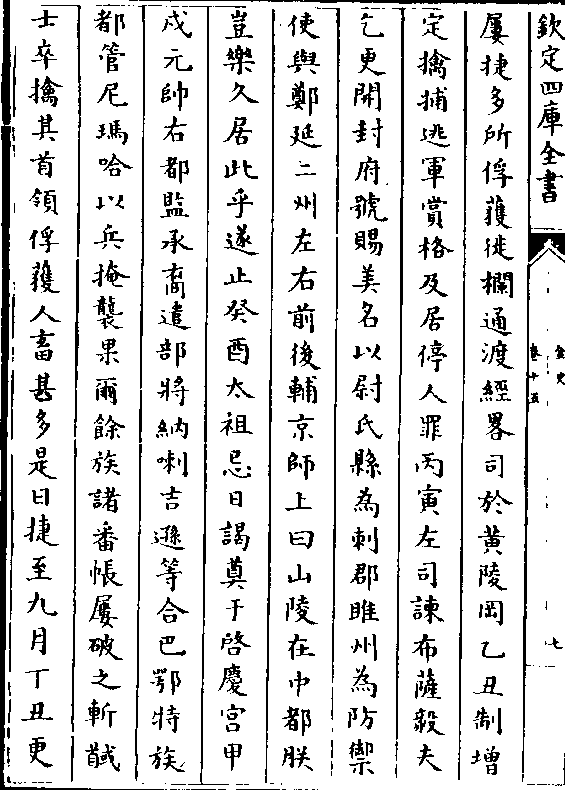 欽定四庫全書
金史
卷十五
七
屢捷多所俘獲徙欄通渡經畧司於黄陵岡乙丑制增
定擒捕逃軍賞格及居停人罪丙寅左司諫布薩毅夫
乞更開封府號賜美名以尉氏縣為刺郡睢州為防禦
使與鄭延二州左右前後輔京師上曰山陵在中都朕
豈樂久居此乎遂止癸酉太祖忌日謁奠于啓慶宫甲
戌元帥右都監承裔遣部將納喇吉遜等合巴鄂特族
都管尼瑪哈以兵掩襲果爾餘族諸番帳屢破之斬馘
士卒擒其首領俘獲人畜甚多是日捷至九月丁丑更